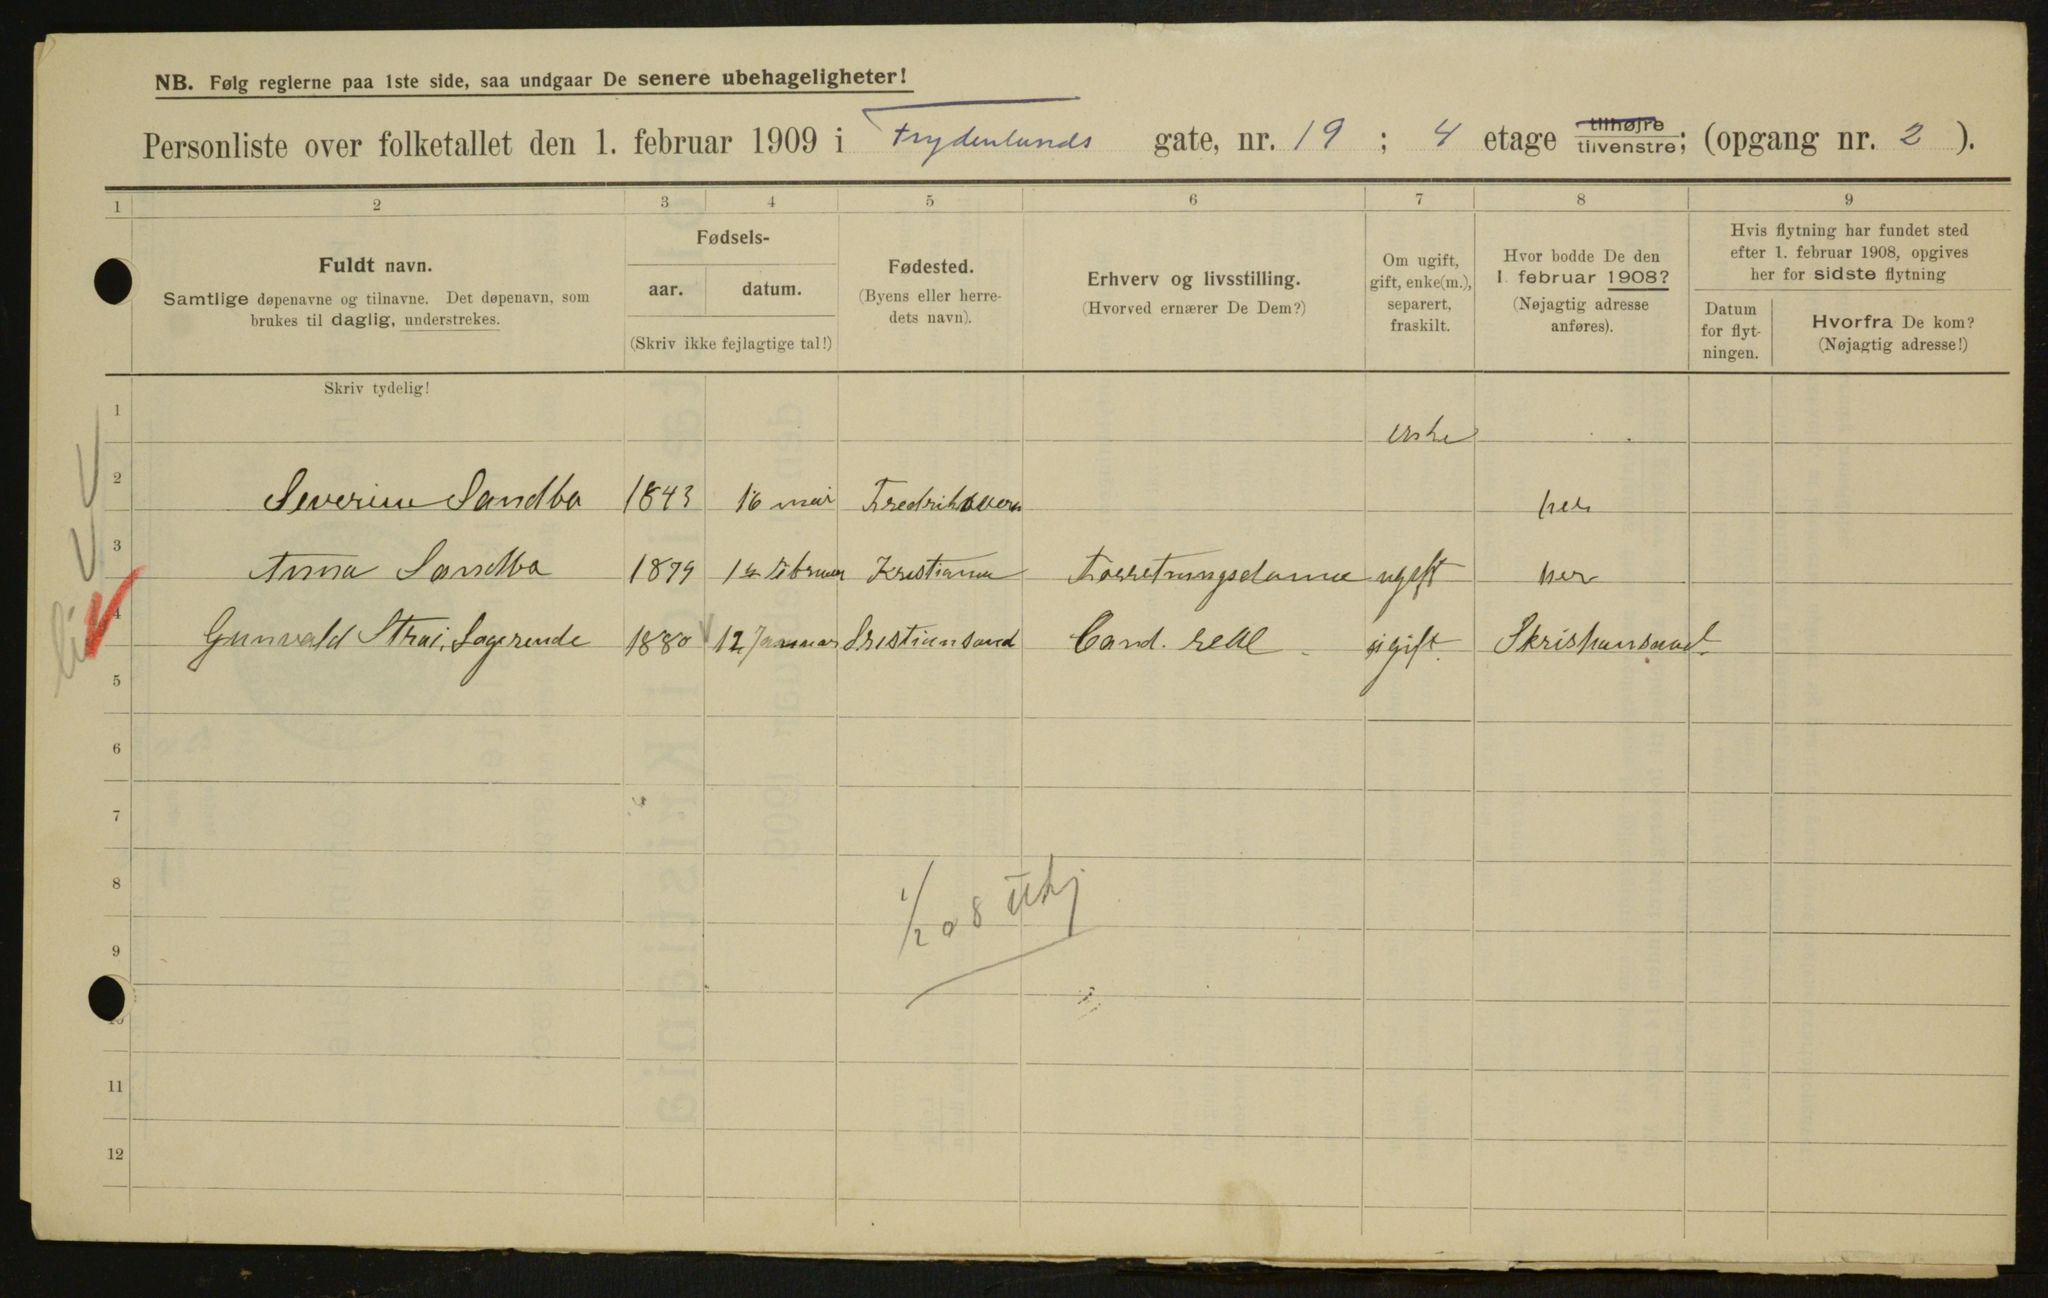 NB. Følg reglerne paa 1ste side, saa undgaar De senere ubehageligheter!
Personliste over folketallet den 1. februar 1909 i Frydenlunds gate, nr. 19 ; 4 etage tilhøjre tilvenstre; (opgang nr. 2 ).
1 2 3 4 5 6 7 8 9
Fuldt navn.
Samtlige døpenavne og tilnavne. Det døpenavn, som
brukes til daglig, understrekes.
Fødsels-
aar. datum.
(Skriv ikke fejlagtige tal!)
Fødested.
(Byens eller herre-
dets navn).
Erhverv og livsstilling.
(Hvorved ernærer De Dem?)
Om ugift,
gift, enke(m.),
separert,
fraskilt.
Hvor bodde De den
1. februar 1908?
(Nøjagtig adresse
anføres).
Hvis flytning har fundet sted
efter 1. februar 1908, opgives
her for sidste flytning
Datum
for flyt-
ningen.
Hvorfra De kom?
(Nøjagtig adresse!)
Skriv tydelig!
1 enke
2 Severine Sandbo 1843 16 mai Fredriksvern her
3 Anna Sandbo 1879 februar Kristiania Forretningsdame ugift her
4 Gunvald Strai, Logerende 1880 12 Januar Kristiansand Cand. real ugift Kristiansand
5
6
7
8
1/2 08
9
10
11
12